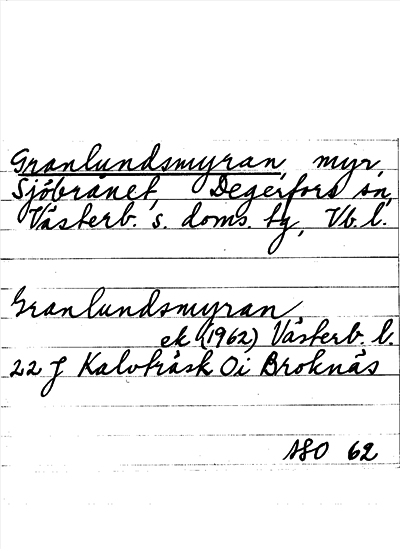 Granlundsmyran, myr,
Sjöbrånet, Degerfors sn,
Västerb. s. doms. tg, Vb. l.
Granlundsmyran
ek (1962) Västerb. l.
22 J Kalvträsk Oi Broknäs
ASO 62